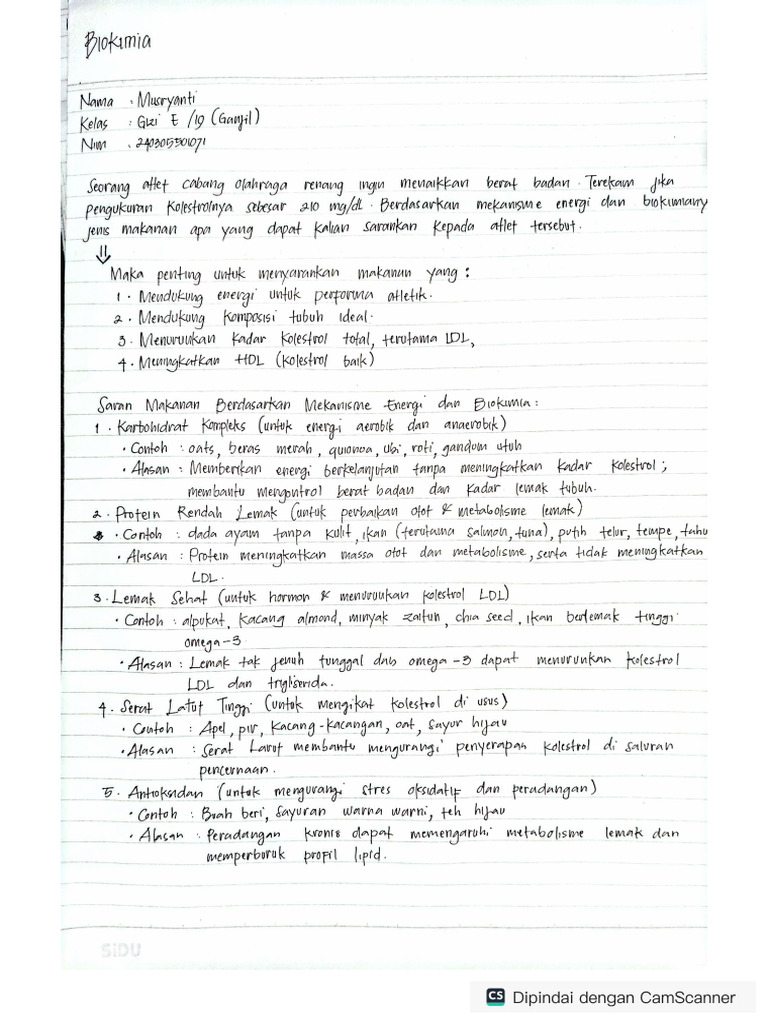 Biokimia
Nama : Musryanti
Kelas : Gizi E /19 (Ganjil)
Nim : 240305501071
Seorang atlet cabang olahraga renang ingin menaikkan berat badan. Terekam jika
pengukuran kolestrolnya sebesar 210 mg/dL. Berdasarkan mekanisme energi dan biokimiany
jenis makanan apa yang dapat kalian sarankan kepada atlet tersebut.
⇓
Maka penting untuk menyarankan makanan yang :
1. Mendukung energi untuk performa atletik.
2. Mendukung komposisi tubuh ideal.
3. Menurunkan kadar kolestrol total, terutama LDL,
4. Meningkatkan HDL (kolestrol baik)
Saran Makanan Berdasarkan Mekanisme Energi dan Biokimia :
1. Karbohidrat Kompleks (untuk energi aerobik dan anaerobik)
• Contoh : oats, beras merah, quionoa, ubi, roti, gandum utuh
• Alasan : Memberikan energi berkelanjutan tanpa meningkatkan kadar kolestrol ;
membantu mengontrol berat badan dan kadar lemak tubuh.
2. Protein Rendah Lemak (untuk perbaikan otot & metabolisme lemak)
• Contoh : dada ayam tanpa kulit, ikan (terutama salmon, tuna), putih telur, tempe, tahu
• Alasan : Protein meningkatkan massa otot dan metabolisme, serta tidak meningkatkan
LDL.
3. Lemak Sehat (untuk hormon & menurunkan kolestrol LDL)
• Contoh : alpukat, kacang almond, minyak zaitun, chia seed, ikan berlemak tinggi
omega-3
• Alasan : Lemak tak jenuh tunggal dan omega-3 dapat menurunkan kolestrol
LDL dan trigliserida.
4. Serat Larut Tinggi (untuk mengikat kolestrol di usus)
• Contoh : Apel, pir, kacang-kacangan, oat, sayur hijau
• Alasan : Serat Larut membantu mengurangi penyerapan kolestrol di saluran
pencernaan.
5. Antioksidan (untuk mengurangi stres oksidatif dan peradangan)
• Contoh : Buah beri, sayuran warna warni, teh hijau
• Alasan : Peradangan kronis dapat memengaruhi metabolisme lemak dan
memperburuk profil lipid.
SiDU
CS Dipindai dengan CamScanner